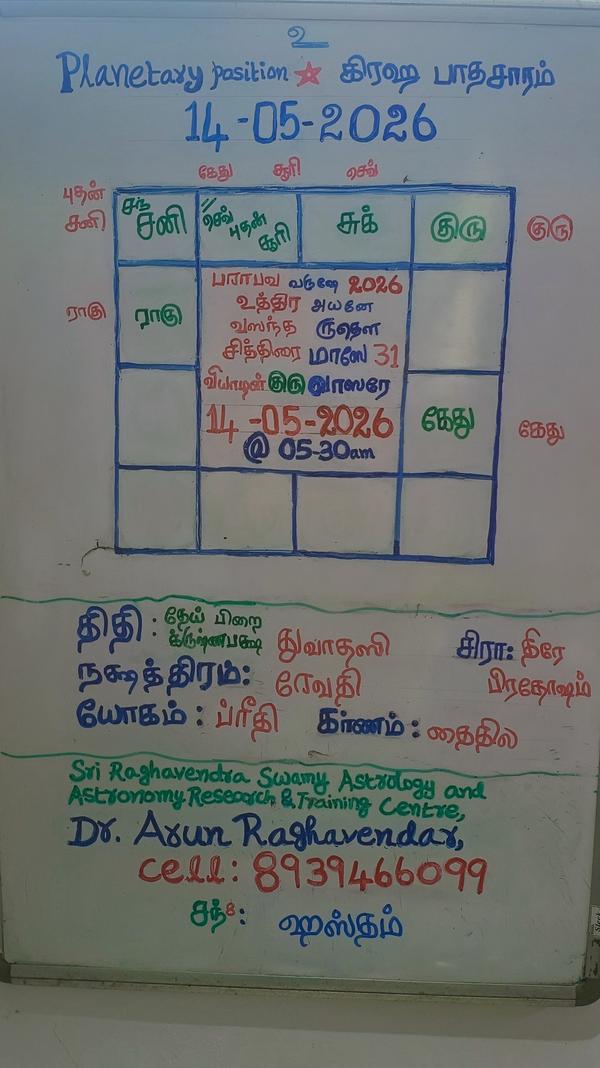 உ
Planetary position ☆ கிரஹ பாதசாரம்
14-05-2026
கேது சூரி செவ்
புதன்
சனி
சந் சனி
செவ் புதன் சூரி
சுக்
குரு
குரு
ராகு
ராகு
பராபவ வருஷே 2026
உத்திர அயனே
வஸந்த ருதௌ
சித்திரை மாஸே 31
வியாழன் குரு வாஸரே
14-05-2026
@ 05-30am
கேது
கேது
திதி : தேய் பிறை க்ருஷ்ணபக்ஷ துவாதஸி சிரா: திரே
நக்ஷத்திரம்: ரேவதி பிரதோஷம்
யோகம் : ப்ரீதி கர்ணம் : தைதில
Sri Raghavendra Swamy Astrology and
Astronomy Research & Training Centre,
Dr. Arun Raghavendar,
cell: 8939466099
சந்8: ஹஸ்தம்